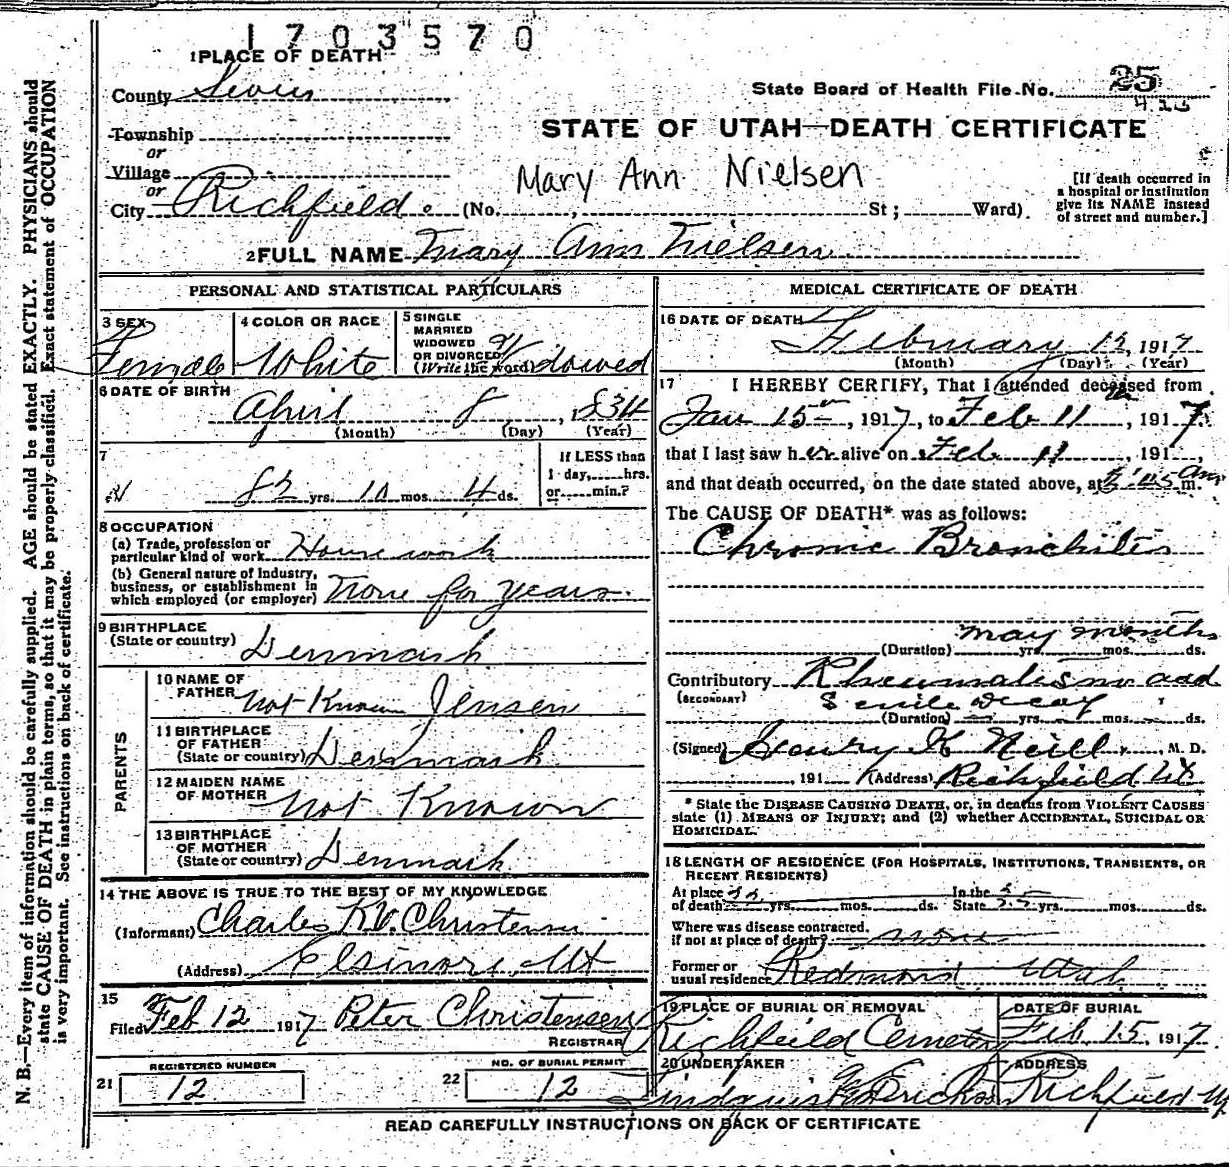 1703570
1 PLACE OF DEATH
County Sevier
State Board of Health File No. 25
Township
or
STATE OF UTAH—DEATH CERTIFICATE
Village
or
Mary Ann Nielsen
City Richfield. (No. , St; Ward)
[If death occurred in
a hospital or institution
give its NAME instead
of street and number.]
2 FULL NAME Mary Ann Nielsen
PERSONAL AND STATISTICAL PARTICULARS
3 SEX
Female
4 COLOR OR RACE
White
5 SINGLE
MARRIED
WIDOWED
OR DIVORCED
(Write the word) Widowed
6 DATE OF BIRTH
April 8, 1834
(Month) (Day) (Year)
7
82 yrs. 10 mos. 4 ds.
If LESS than
1 day, hrs.
or min.?
8 OCCUPATION
(a) Trade, profession or
particular kind of work House work
(b) General nature of industry,
business, or establishment in
which employed (or employer) None for years.
9 BIRTHPLACE
(State or country) Denmark
PARENTS
10 NAME OF
FATHER Not Known Jensen
11 BIRTHPLACE
OF FATHER
(State or country) Denmark
12 MAIDEN NAME
OF MOTHER Not Known
13 BIRTHPLACE
OF MOTHER
(State or country) Denmark
14 THE ABOVE IS TRUE TO THE BEST OF MY KNOWLEDGE
(Informant) Charles K.V. Christensen
(Address) Elsinore Ut
15
Filed Feb 12 1917 Peter Christensen
REGISTRAR
REGISTERED NUMBER
21 12
NO. OF BURIAL PERMIT
22 12
MEDICAL CERTIFICATE OF DEATH
16 DATE OF DEATH
February 12, 1917
(Month) (Day) (Year)
17 I HEREBY CERTIFY, That I attended deceased from
Jan 15, 1917, to Feb 11, 1917.
that I last saw her alive on Feb 11, 191 ,
and that death occurred, on the date stated above, at :45 am m.
The CAUSE OF DEATH* was as follows:
Chronic Bronchitis
many months
(Duration) yrs. mos. ds.
Contributory Rheumatism and
(SECONDARY) Senile decay
(Duration) yrs. mos. ds.
(Signed) Henry K Neill, M. D.
, 191 (Address) Richfield Ut
* State the DISEASE CAUSING DEATH, or, in deaths from VIOLENT CAUSES
state (1) MEANS OF INJURY; and (2) whether ACCIDENTAL, SUICIDAL OR
HOMICIDAL.
18 LENGTH OF RESIDENCE (FOR HOSPITALS, INSTITUTIONS, TRANSIENTS, OR
RECENT RESIDENTS)
At place In the
of death yrs. mos. ds. State yrs. mos. ds.
Where was disease contracted,
if not at place of death? none
Former or
usual residence Redmond Utah
19 PLACE OF BURIAL OR REMOVAL
Richfield Cemetery
DATE OF BURIAL
Feb. 15, 1917.
20 UNDERTAKER
ADDRESS
Richfield Ut
READ CAREFULLY INSTRUCTIONS ON BACK OF CERTIFICATE
N. B.—Every item of information should be carefully supplied. AGE should be stated EXACTLY. PHYSICIANS should
state CAUSE OF DEATH in plain terms, so that it may be properly classified. Exact statement of OCCUPATION
is very important. See instructions on back of certificate.